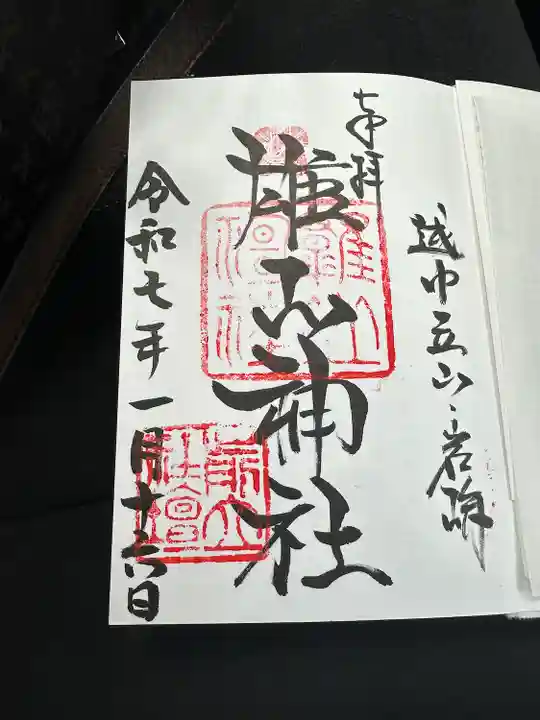 越中立山岩峅
奉拝
雄山神社
雄山神社
前立
社壇
令和七年一月十六日